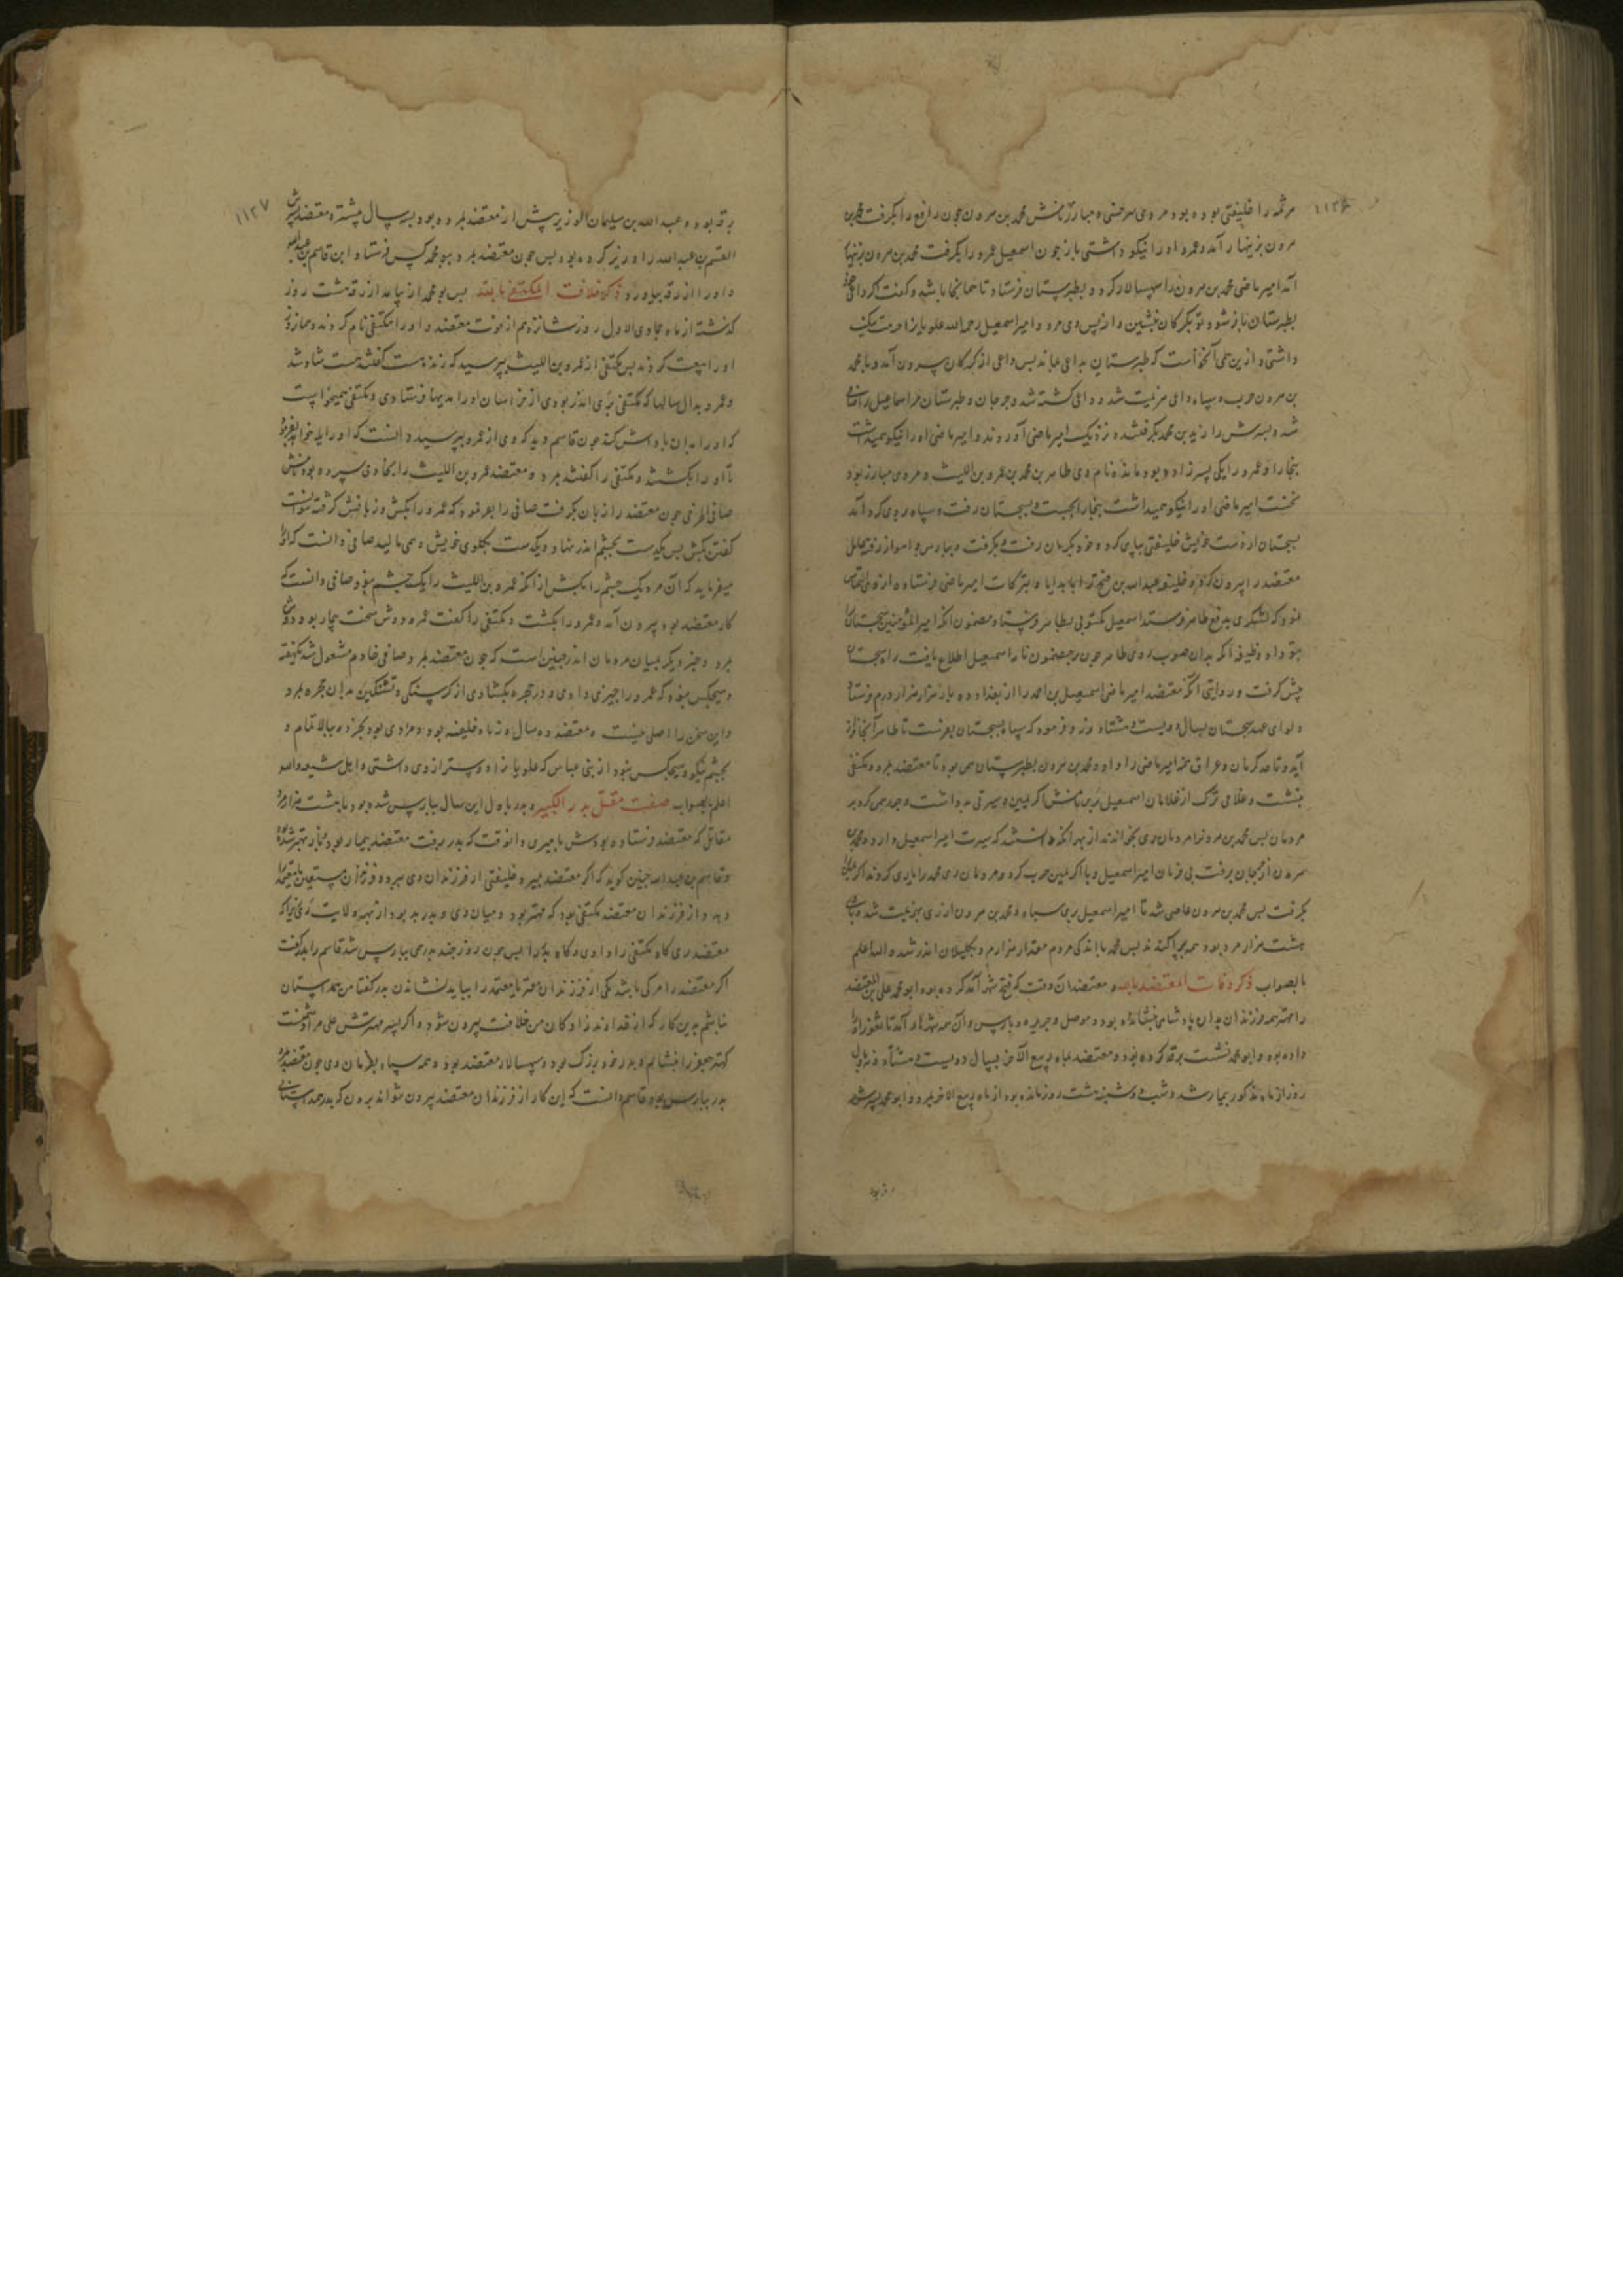 ۱۱۲۶
هرثمه را خلیفتی بوده بود مردی سرخسی و مبارز نامش محمد بن هرون چون رافع را بکرفت محمد بن
هرون بزینهار آمد و عمرو اورا نیکو داشتی باز چون اسمعیل عمرو را بکرفت محمد بن هرون بزینهار
آمد امیر ماضی محمد بن هرون را سپهسالار کرد و بطبرستان فرستاد تا همانجا باشد و کفت اکر داعی
بطبرستان باز شود تو بکرکان بنشین و از پس وی مرو و امیر اسمعیل رحمه الله علویانرا حرمت
داشتی و از بن همی آنخواست که طبرستان بداعی ماند پس داعی از کرکان بیرون آمد و با محمد
بن هرون حرب و سپاه داعی هزیمت شد و داعی کشته شد و جرجان و طبرستان مر اسماعیل را صافی
شد و پسرش را زید بن محمد بکرفتند و نزدیک امیر ماضی آوردند و امیر ماضی اورا نیکو همیداشت
بخارا و عمرو را یکی پسر زاده بود مانده نام وی طاهر بن محمد بن عمرو بن اللیث و مردی مبارز بود
نخست امیر ماضی اورا نیکو همیداشت بخارا بجست و بسجستان رفت و سپاه بروی کرد آمد
سجستان از دست خویش خلیفتی بپای کرد و خود بکرمان رفت و بکرفت و بپارس و اهواز رفت عامل
معتضد را بیرون کرد و خلیفه عبدالله بن فتح را با هدایا و تبرکات امیر ماضی فرستاده از وی التماس
نمود که لشکری بدفع طاهر فرستد اسمعیل مکتوبی بطاهر فرستاد مضمون آنکه امیر المؤمنین سجستان
بتو داد و وظیفه آنکه بدان صوب روی طاهر چون بر مضمون نامه اسمعیل اطلاع یافت راه سجستان
پیش کرفت و روایتی آنکه معتضد امیر ماضی اسمعیل بن احمد را از بغداد ده بار هزار هزار درم فرستاد
و لوای عهد سجستان بسال دویست و هشتاد و فرمود که سپاه بسجستان بفرست تا طاهر آنجا فراز
آید و تا حد کرمان و عراق مر امیر ماضی را داد و محمد بن هرون بطبرستان همی بود تا معتضد بمرد و مکتفی
بنشست و غلامی ترک از غلامان اسمعیل بری نامش اکرتمین و سیرتی بد داشت و جور همی کرد بر
مردمان پس محمد بن هرون را مردمان ری بخواندند از بهر آنکه دانستند که سیرت امیر اسمعیل دارد و محمد بن
هرون از کرکان برفت بی فرمان امیر اسمعیل و با اکرتمین حرب کرد و مردمان ری محمد را یاری کردند
بکرفت پس محمد بن هرون عاصی شد تا امیر اسمعیل بری سپاه و محمد بن هرون از ری بهزیمت شد و با وی
هشت هزار مرد بود همه بپراکندند پس محمد با اندکی مردم مقدار هزار مرد بکیلان اندر شد والله اعلم
بالصواب ذکر وفات المعتضد بالله و معتضد آن وقت که فتح شهر آمد کرده بود ابو محمد علی بن المعتضد
را مهتر همه فرزندان بدان پادشاهی بنشانده بود و موصل و جزیره و پارس و آن همه شهرها تا
داده بود و ابو محمد نشست برقه کرده بود و معتضد بماه ربیع الآخر بسال دویست و هشتاد و نه اول
روز از ماه مذکور بیمار شد و شب دوشنبه هشت روز مانده بود از ماه ربیع الاخر بمرد و ابو محمد پسرش
۱۱۲۷
برقه بود و عبد الله بن سلیمان الوزیر پیش از معتضد بمرده بود بیسال پیشتر و معتضد پسرش
القسم بن عبد الله را وزیر کرده بود پس چون معتضد بمرد ببو محمد کس فرستاد این قاسم بن عبدالله
و اورا از رقه بیاورد ذکر خلافت المکتفی بالله پس بو محمد از بیامد از رقه هشت روز
کذشته از ماه جمادی الاول روز شانزدهم از موت معتضد و اورا مکتفی نام کردند و هم آنروز
اورا بیعت کردند پس مکتفی از عمرو بن اللیث بپرسید که زنده هست کفتند هست شاد شد
و عمرو بدان سالها که مکتفی بری اندر بودی از خراسان اورا هدیها فرستادی و مکتفی همیخواست
که اورا بدان پاداش کند چون قاسم دید که وی از عمرو بپرسید دانست که اورا بخواهد
تا اورا بکشتند و مکتفی را کفتند بمرد و معتضد عمرو بن اللیث را بخادمی سپرده بود نامش
صافی الحرمی چون معتضد را زبان بکرفت صافی را بفرمود که عمرو را بکش و زبانش کرفته نتوانست
کفتن بکش پس یکدست بچشم اندر نهاد و یکدست بکلوی خویش و همی مالید صافی دانست که اورا
میفرماید که آن مرد یک چشم را بکش از آنکه عمرو بن اللیث را یک چشم بود و صافی دانست که
کار معتضد بود بیرون آمد و عمرو را بکشت و مکتفی را کفت عمرو دوش سخت بیمار بود و دوش
بمرد و خبر دیکر بمیان مردمان اندر چنین است که چون معتضد بمرد و صافی خادم مشغول شد یکهفته
و هیچکس نبود که عمرو را چیزی دادی و در حجره بکشادی از کرسنکی و تشنکی بدان حجره بمرد
و این سخن را اصلی نیست و معتضد ده سال و نه ماه خلیفه بود و مردی بود بخرد و ببالا تمام و
بچشم نیکو و هیچکس نبود از بنی عباس که علویانرا دوستر از وی داشتی و اهل شیعه والله
اعلم بالصواب صفت مقتل بدر الکبیر و بدر باول این سال بپارس شده بود با هشت هزار مرد
مقاتل که معتضد فرستاده بودش بامیری و آنوقت که بدر برفت معتضد بیمار بود و باز بهتر شده
و قاسم بن عبد الله چنین کوید که اکر معتضد بمیرد خلیفتی از فرزندان وی ببرد و فرزندان مستعین یا معتمد
دهد و از فرزندان معتضد مکتفی بود که مهتر بود و میان وی و بدر بد بود از بهر ولایت ری چرا که
معتضد ری کاه مکتفی را دادی و کاه بدر را پس چون روز چند بدر همی بپارس شد قاسم بدر را کفت
اکر معتضد را مرکی باشد یکی از فرزندان معتز یا معتمد را بباید نشاندن بدر کفتا من همداستان
نباشم بدین کار که از خداوندزادکان من خلافت بیرون شود و اکر پسر مهترش علی مرا دشمنست
کهتر جعفر را بنشانم و بدر خود بزرک بود و سپهسالار معتضد بود و همه سپاه بفرمان وی چون معتضد بمرد
بدر بپارس بود قاسم دانست که این کار از فرزندان معتضد بیرون نتواند بردن که بدر همداستان